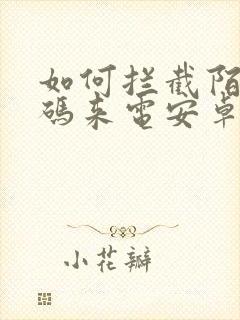 如何拦截陌
码来电安卓
小花瓣